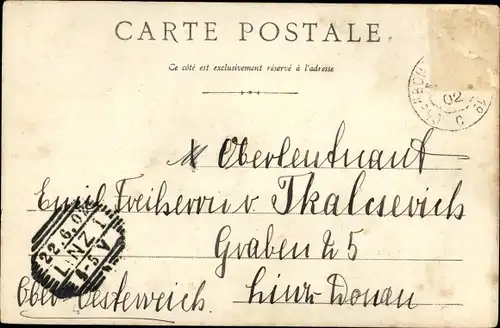 CARTE POSTALE
Ce côté est exclusivement réservé à l'adresse
02
C
Oberleutnant
Emil Freiherrn v. Tkalcsevich
Graben 25
22.6.02
LINZ 1
Ober Oesterreich. Linz-Donau